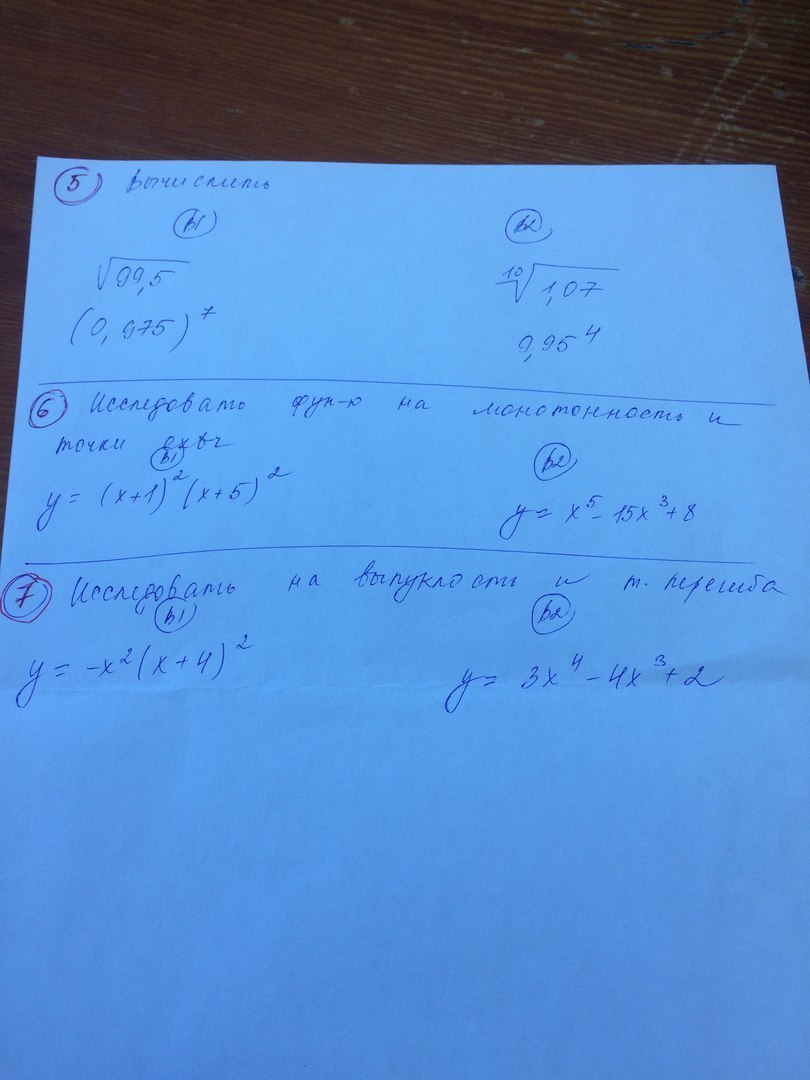 5 Вычислить
В1 В2
√99,5 ¹⁰√1,07
(0,975)⁷ 9,95⁴
6 Исследовать фун-ю на монотонность и
точки
В1 В2
y = (x+1)²(x+5)² y = x⁵ - 15x³ + 8
7 Исследовать на выпуклость и т. перегиба
В1 В2
y = -x²(x+4)² y = 3x⁴ - 4x³ + 2